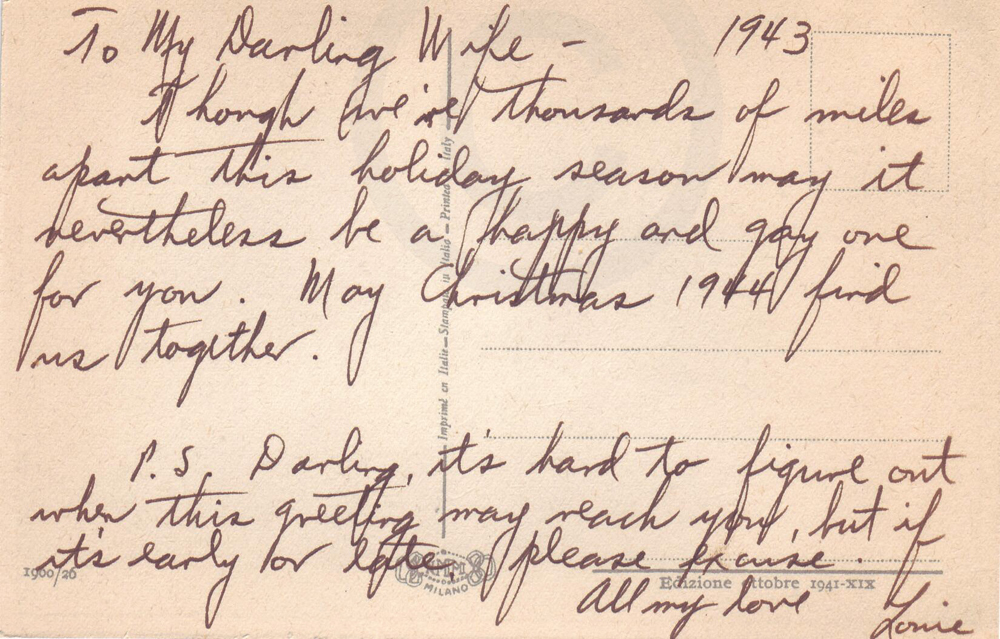 To My Darling Wife - 1943
Though we're thousands of miles
apart this holiday season may it
nevertheless be a happy and gay one
for you. May Christmas 1944 find
us together.
P.S. Darling, it's hard to figure out
when this greeting may reach you, but if
it's early or late, please excuse.
All my love Louie
Imprimé en Italie — Stampato in Italia — Printed Italy
1900/26
MILANO
Edizione ottobre 1941-XIX